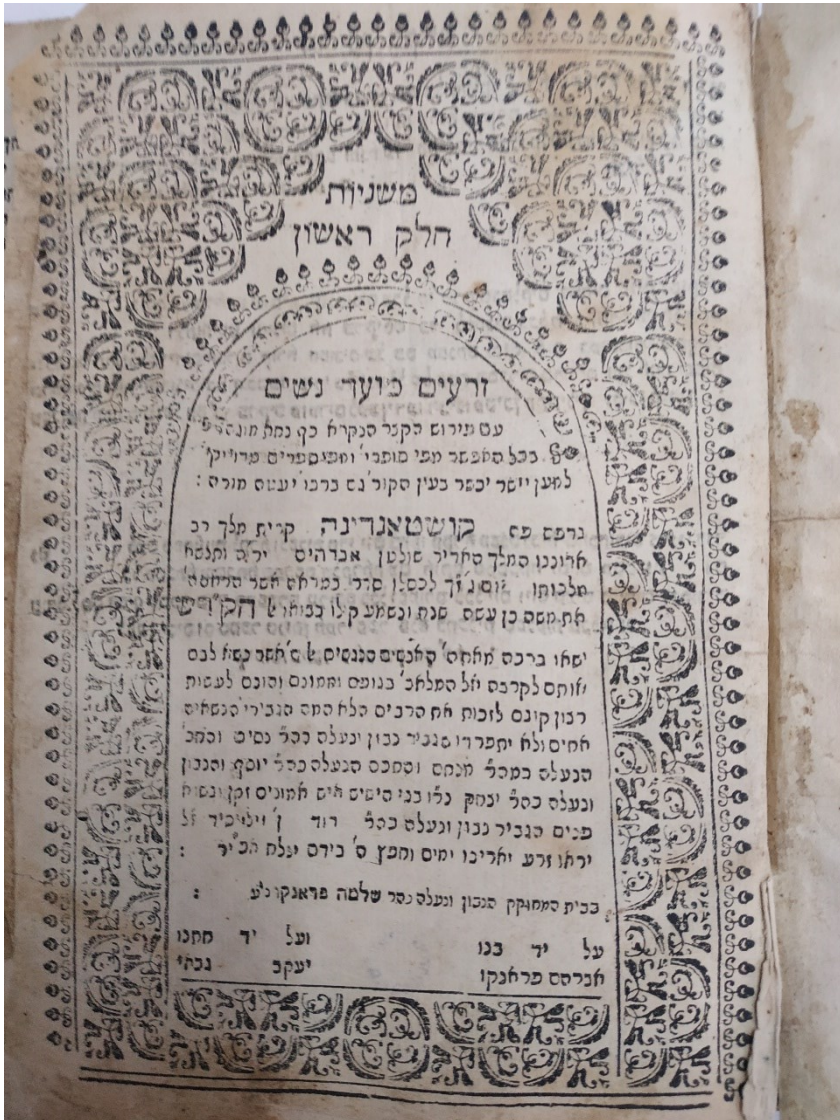 משניות
חלק ראשון
זרעים מועד נשים
עם פירוש הקצר הנקרא כף נחת מוגה
בכל האפשר מפי סופרי' ומפי ספרים
למען יישר יכשר בעין הקור' גם ברכו' יעטה מורה :
נדפס פה קושטאנדינה קרית מלך רב
אדוננו המלך האדיר שולטן אברהים יר"ה ותנשא
מלכותו יום לכסלו סדר במראה אשר
את משה כן עשה שנת ונשמע קולו בבואו אל הק'דש
ישאו ברכה מאת ה' האנשים הנגשים אל ה' אשר נשא לבם
אותם לקרבה אל המלאכ' בגופם וממונם והונם לעשות
רצון קונם לזכות את הרבים הלא המה הגבירי' הנשאים
אחים ולא יתפרדו הגביר נבון ונעלה כה"ר נסים והחכ'
הנעלה כמה"ר מנחם והחכם הנעלה כה"ר יוסף והנבון
ונעלה כה"ר יצחק נר"ו בני הישיש איש אמונים זקן ונשוא
פנים הגביר נבון ונעלה כה"ר דוד ן' זל
יראו זרע יאריכו ימים וחפץ ה' בידם יצלח אכי"ר :
בבית המחוקק הנבון ונעלה כהר שלמה פראנקו נ"ע :
על יד בנו ועל יד חתנו
אברהם פראנקו יעקב גבאי